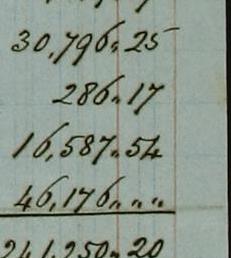 30,796 " 25
286 " 17
16,587 " 54
46,176 " " "
241,250 " 20